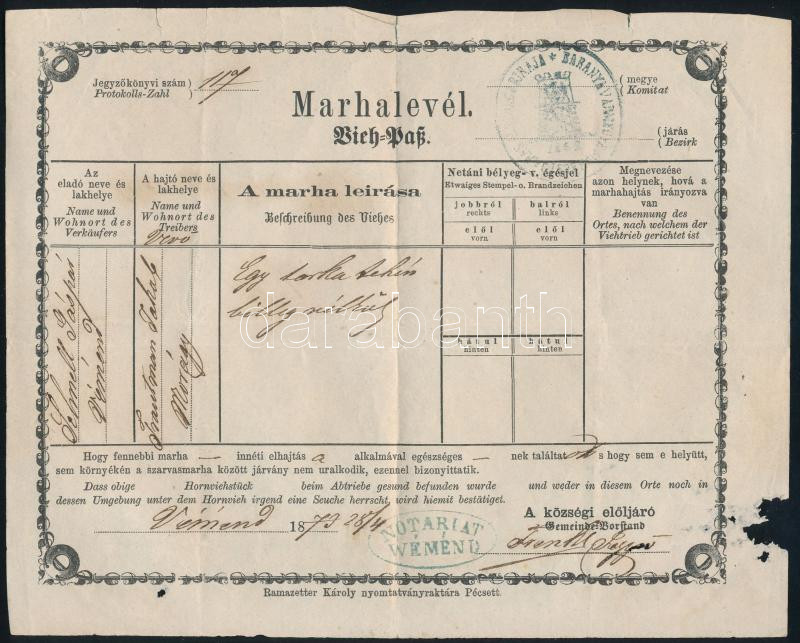 Jegyzőkönyvi szám )
Protokolls-Zahl )
117
BARANYA
Marhalevél.
Vieh-Paß.
( megye
( Komitat
( járás
( Bezirk
Az
eladó neve és
lakhelye
Name und
Wohnort des
Verkäufers
A hajtó neve és
lakhelye
Name und
Wohnort des
Treibers
Vevo
A marha leirása
Beschreibung des Viehes
Netáni bélyeg- v. égésjel
Etwaiges Stempel- o. Brandzeichen
jobbról
rechts
balról
links
elől
vorn
elől
vorn
Megnevezése
azon helynek, hová a
marhahajtás irányozva
van
Benennung des
Ortes, nach welchem der
Viehtrieb gerichtet ist
Schmidt Gáspár
Véménd
Trautman Jakab
Morágy
Egy tarka tehén
billeg nélkül
hátul
hinten
hatul
hinten
darabanth
Hogy fennebbi marha — innéti elhajtás a alkalmával egészséges — nek találtatott s hogy sem e helyütt,
sem környékén a szarvasmarha között járvány nem uralkodik, ezennel bizonyittatik.
Dass obige Hornviehstück beim Abtriebe gesund befunden wurde und weder in diesem Orte noch in
dessen Umgebung unter dem Hornvieh irgend eine Seuche herrscht, wird hiemit bestätiget.
Véménd 1873 28/4
NOTARIAT
WÉMÉND
A községi előljáró
Gemeinde-Vorstand
Ramazetter Károly nyomtatványraktára Pécsett.